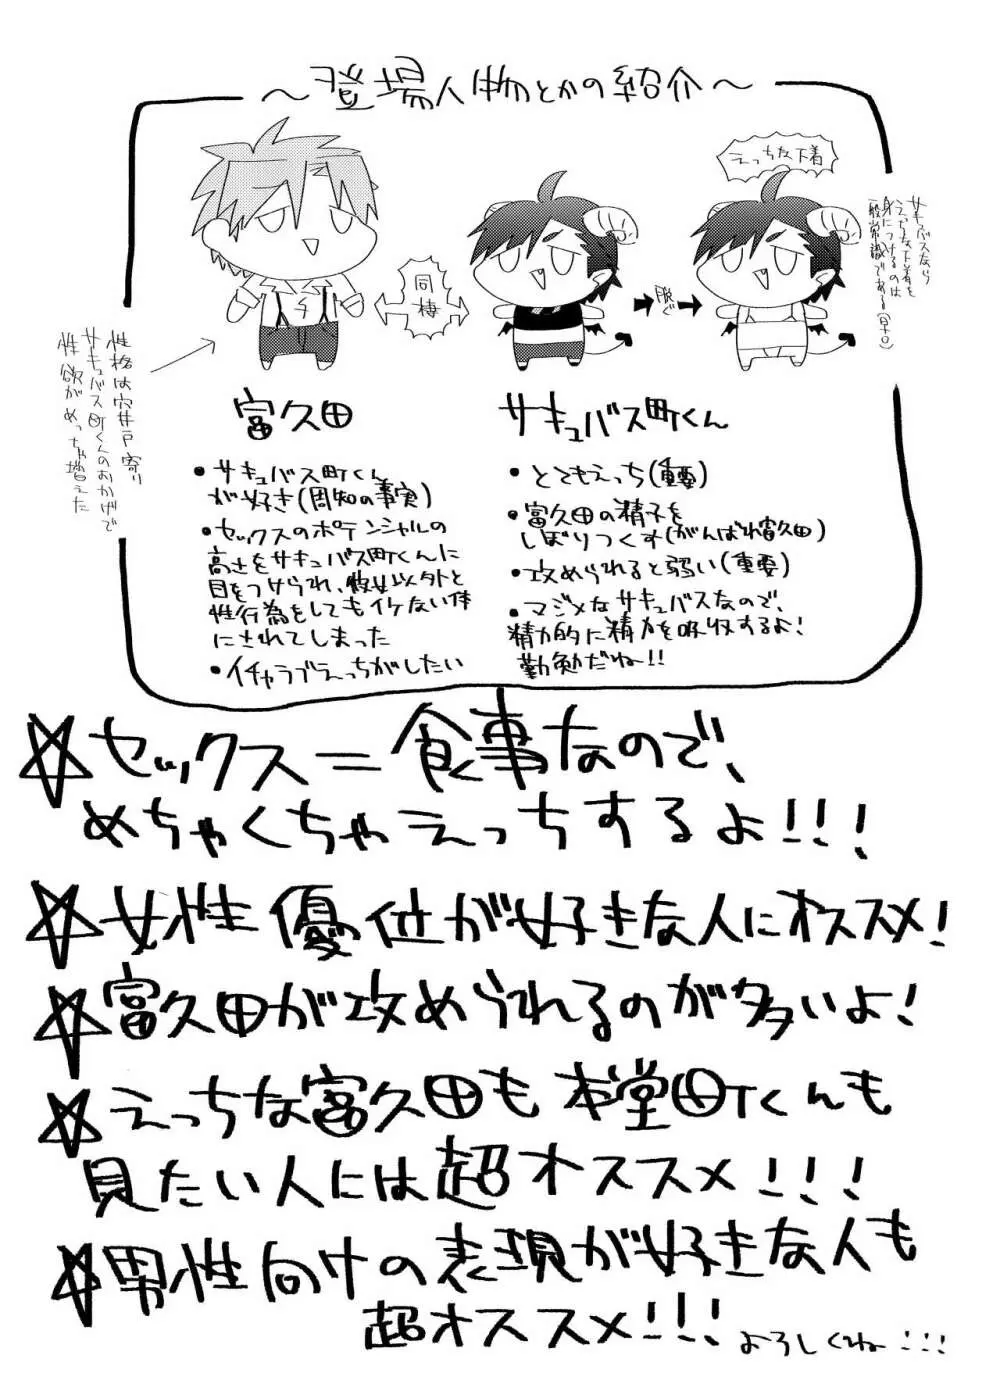 ～登場人物とかの紹介～
えっちな下着
サキュバスなら
えっちな下着を
身につけるのは
一般常識である(早口)
同棲
脱ぐ
性格は穴井戸寄り
サキュバス町くんのおかげで
性欲がめっちゃ増えた
富久田
・サキュバス町くん
が好き(周知の事実)
・セックスのポテンシャルの
高さをサキュバス町くんに
目をつけられ、彼女以外と
性行為をしてもイケない体
にされてしまった
・イチャラブえっちがしたい
サキュバス町くん
・とてもえっち(重要)
・富久田の精子を
しぼりつくす(がんばれ富久田)
・攻められると弱い(重要)
・マジメなサキュバスなので、
精力的に精力を吸収するよ!
勤勉だね!!
☆セックス=食事なので、
めちゃくちゃえっちするよ!!!
☆女性優位が好きな人にオススメ!
☆富久田が攻められるのが多いよ!
☆えっちな富久田も本堂町くんも
見たい人には超オススメ!!!
☆男性向けの表現が好きな人も
超オススメ!!! よろしくねー!!!